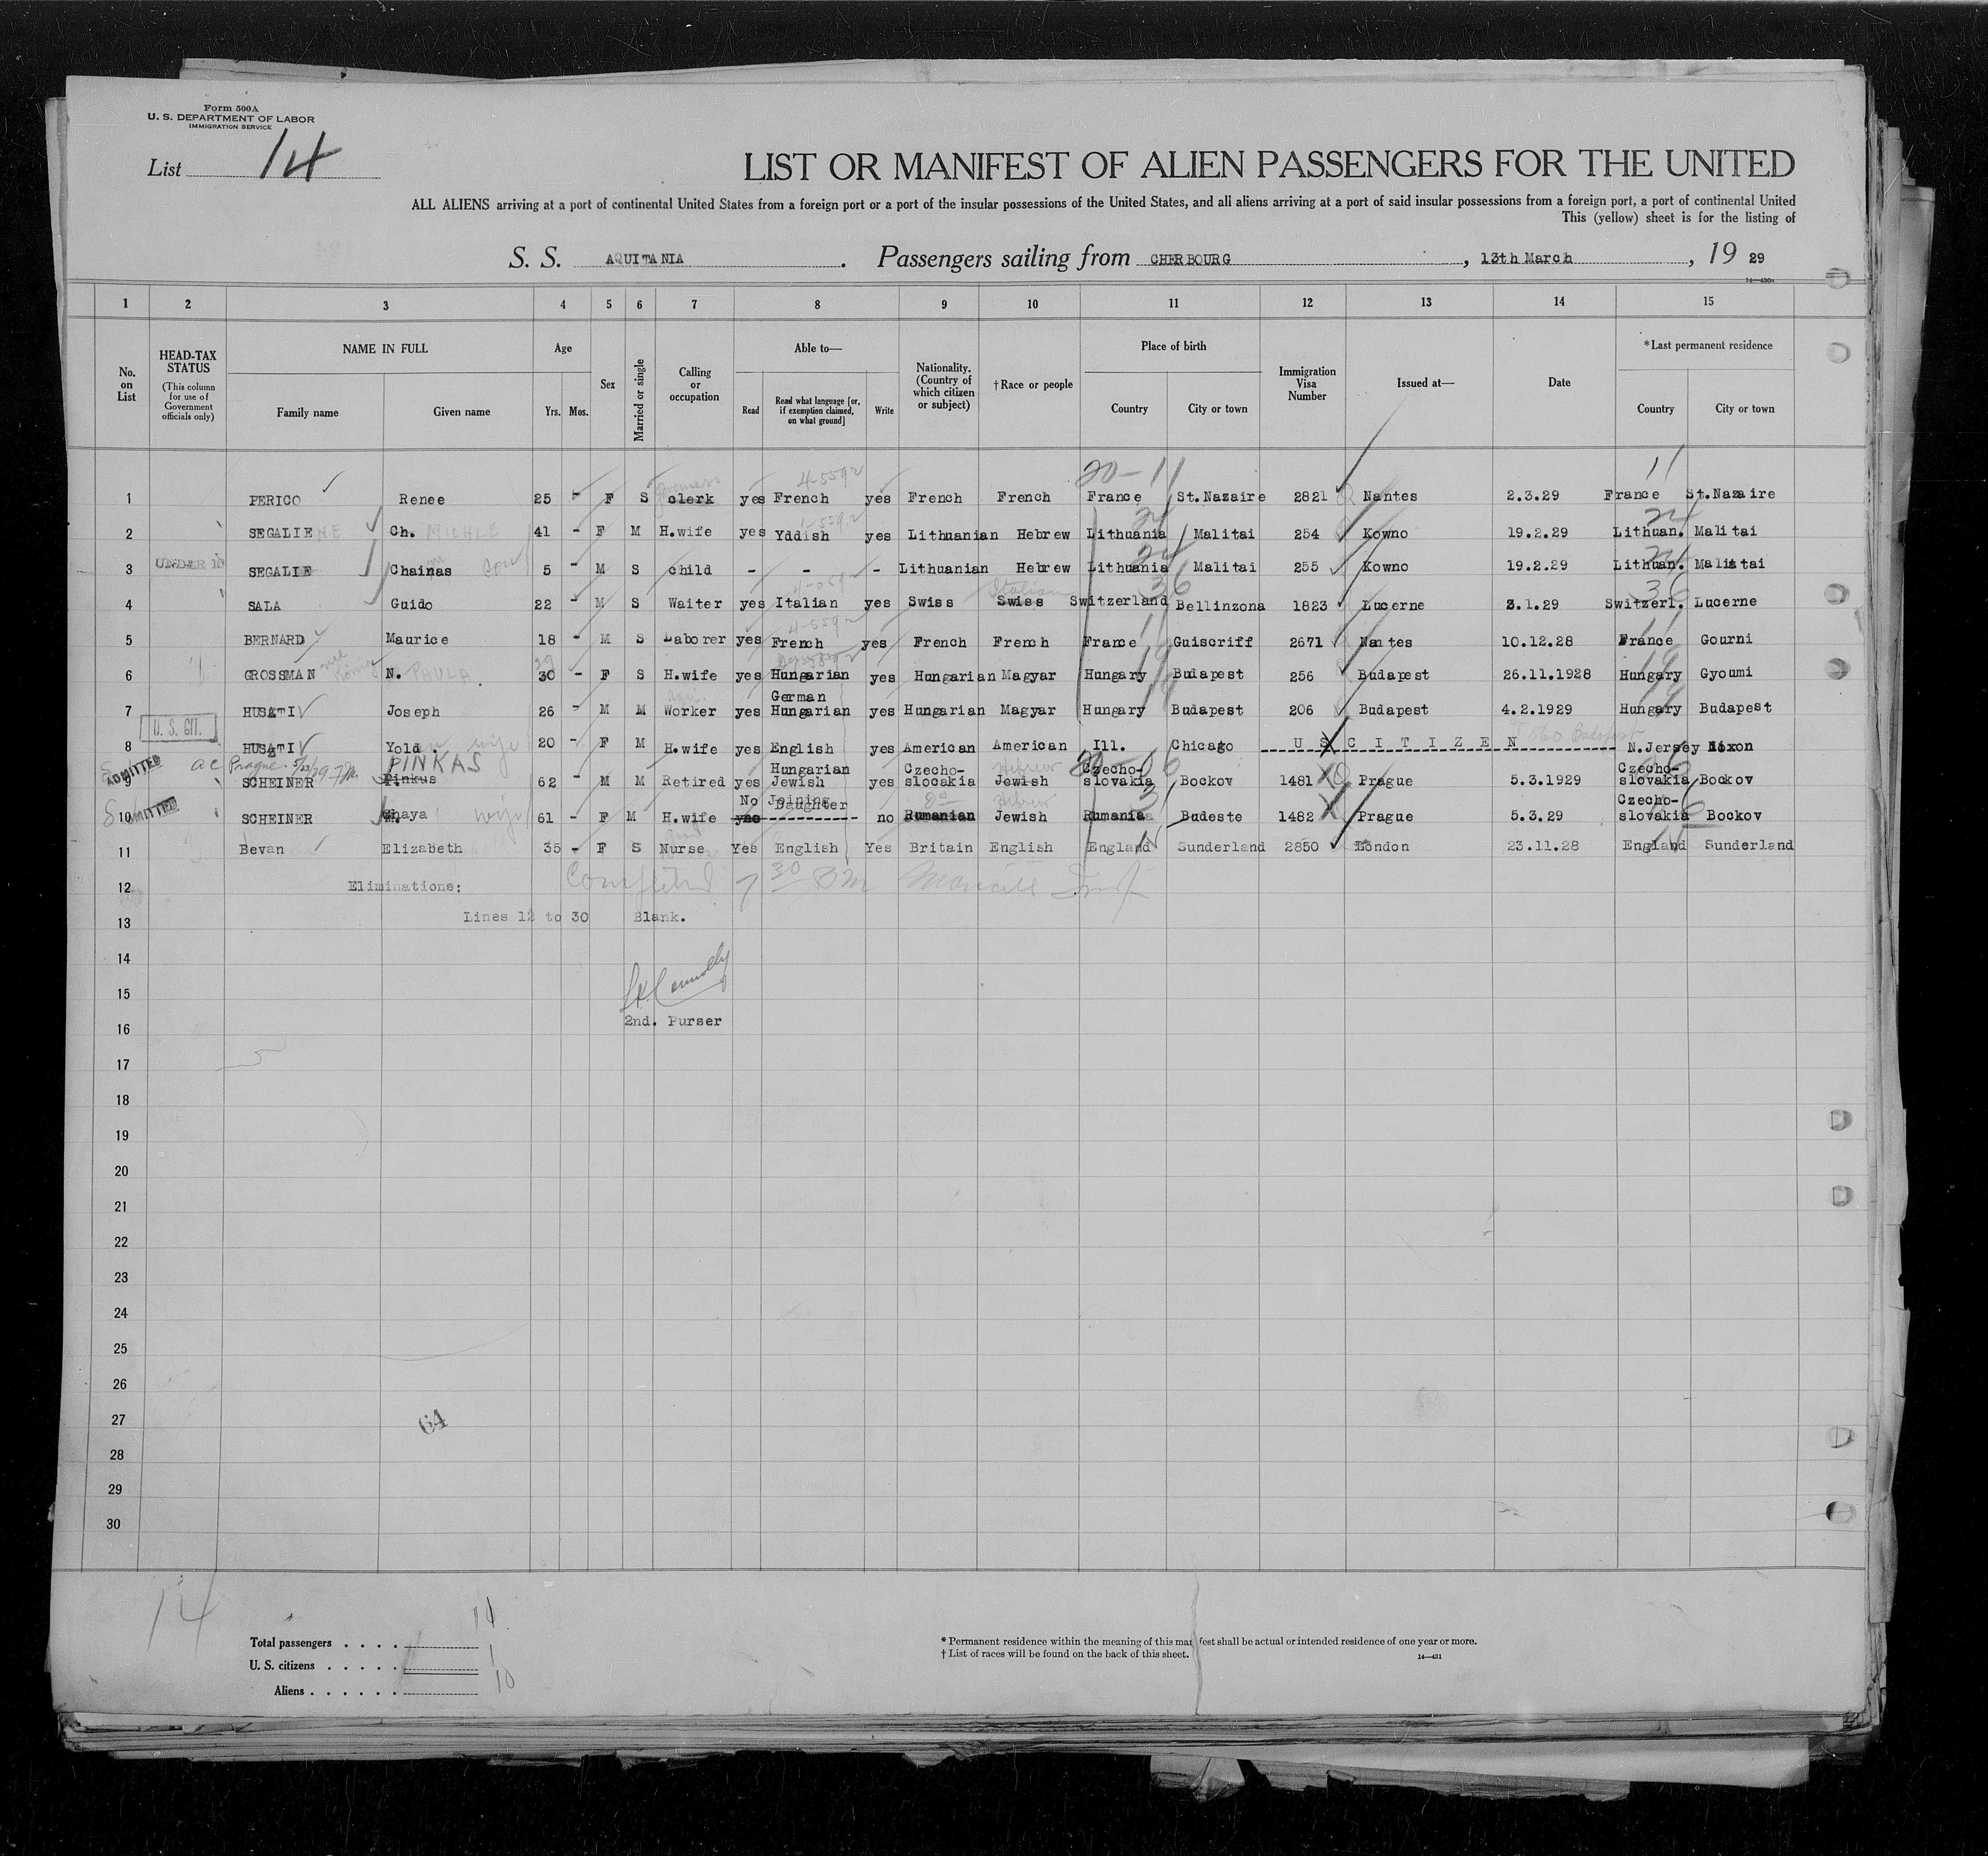 Form 500A
U. S. DEPARTMENT OF LABOR
IMMIGRATION SERVICE
List 14
LIST OR MANIFEST OF ALIEN PASSENGERS FOR THE UNITED
ALL ALIENS arriving at a port of continental United States from a foreign port or a port of the insular possessions of the United States, and all aliens arriving at a port of said insular possessions from a foreign port, a port of continental United
This (yellow) sheet is for the listing of
S. S. AQUITANIA. Passengers sailing from CHERBOURG, 13th March, 19 29
14—430a
1 2 3 4 5 6 7 8 9 10 11 12 13 14 15
No. on List
HEAD-TAX STATUS (This column for use of Government officials only)
NAME IN FULL
Family name Given name
Age
Yrs. Mos.
Sex
Married or single
Calling or occupation
Able to—
Read Read what language [or, if exemption claimed, on what ground] Write
Nationality. (Country of which citizen or subject)
†Race or people
Place of birth
Country City or town
Immigration Visa Number
Issued at—
Date
*Last permanent residence
Country City or town
20-11 11
4-5592
1 PERICO Renee 25 - F S clerk yes French yes French French France St.Nazaire 2821 Nantes 2.3.29 France St.Nazaire
2 SEGALIE NE Ch. MICHLE 41 - F M H.wife yes Yddish yes Lithuanian Hebrew Lithuania Malitai 254 Kowno 19.2.29 Lithuan. Malitai
3 UNDER 16 SEGALIE Chainas son 5 - M S child - - - Lithuanian Hebrew Lithuania Malitai 255 Kowno 19.2.29 Lithuan. Malitai
36 Italian 36
4 SALA Guido 22 - M S Waiter yes Italian yes Swiss Swiss Switzerland Bellinzona 1823 Lucerne 3.1.29 Switzerl. Lucerne
4-5592
5 BERNARD Maurice 18 - M S Laborer yes French yes French French France Guiscriff 2671 Nantes 10.12.28 France Gourni
29
6 GROSSMAN N. PAULA 30 - F S H.wife yes Hungarian yes Hungarian Magyar Hungary Budapest 256 Budapest 26.11.1928 Hungary Gyoumi
7 HUSATI Joseph 26 - M M Worker yes German Hungarian yes Hungarian Magyar Hungary Budapest 206 Budapest 4.2.1929 Hungary Budapest
U. S. CIT.
8 HUSATI Yold. wife 20 - F M H.wife yes English yes American American Ill. Chicago U S CITIZEN N.Jersey Nixon
ADMITTED Prague PINKAS
9 SCHEINER Pinkus 62 - M M Retired yes Hungarian Jewish yes Czecho-slocakia Hebrew Jewish Czecho-slovakia Bockov 1481 Prague 5.3.1929 Czecho-slovakia Bockov
ADMITTED
10 SCHEINER Chaya wife 61 - F M H.wife No Joining Daughter no Rumanian Hebrew Jewish Rumania Budeste 1482 Prague 5.3.29 Czecho-slovakia Bockov
11 Bevan Elizabeth 35 - F S Nurse Yes English Yes Britain English England Sunderland 2850 London 23.11.28 England Sunderland
12 Eliminations: Completed 7 30 PM
13 Lines 12 to 30 Blank.
14
15
16 2nd. Purser
17
18
19
20
21
22
23
24
25
26
27
64
28
29
30
14
Total passengers . . . . 11
U. S. citizens . . . . . 1
Aliens . . . . . . 10
* Permanent residence within the meaning of this manifest shall be actual or intended residence of one year or more.
† List of races will be found on the back of this sheet.
14—431